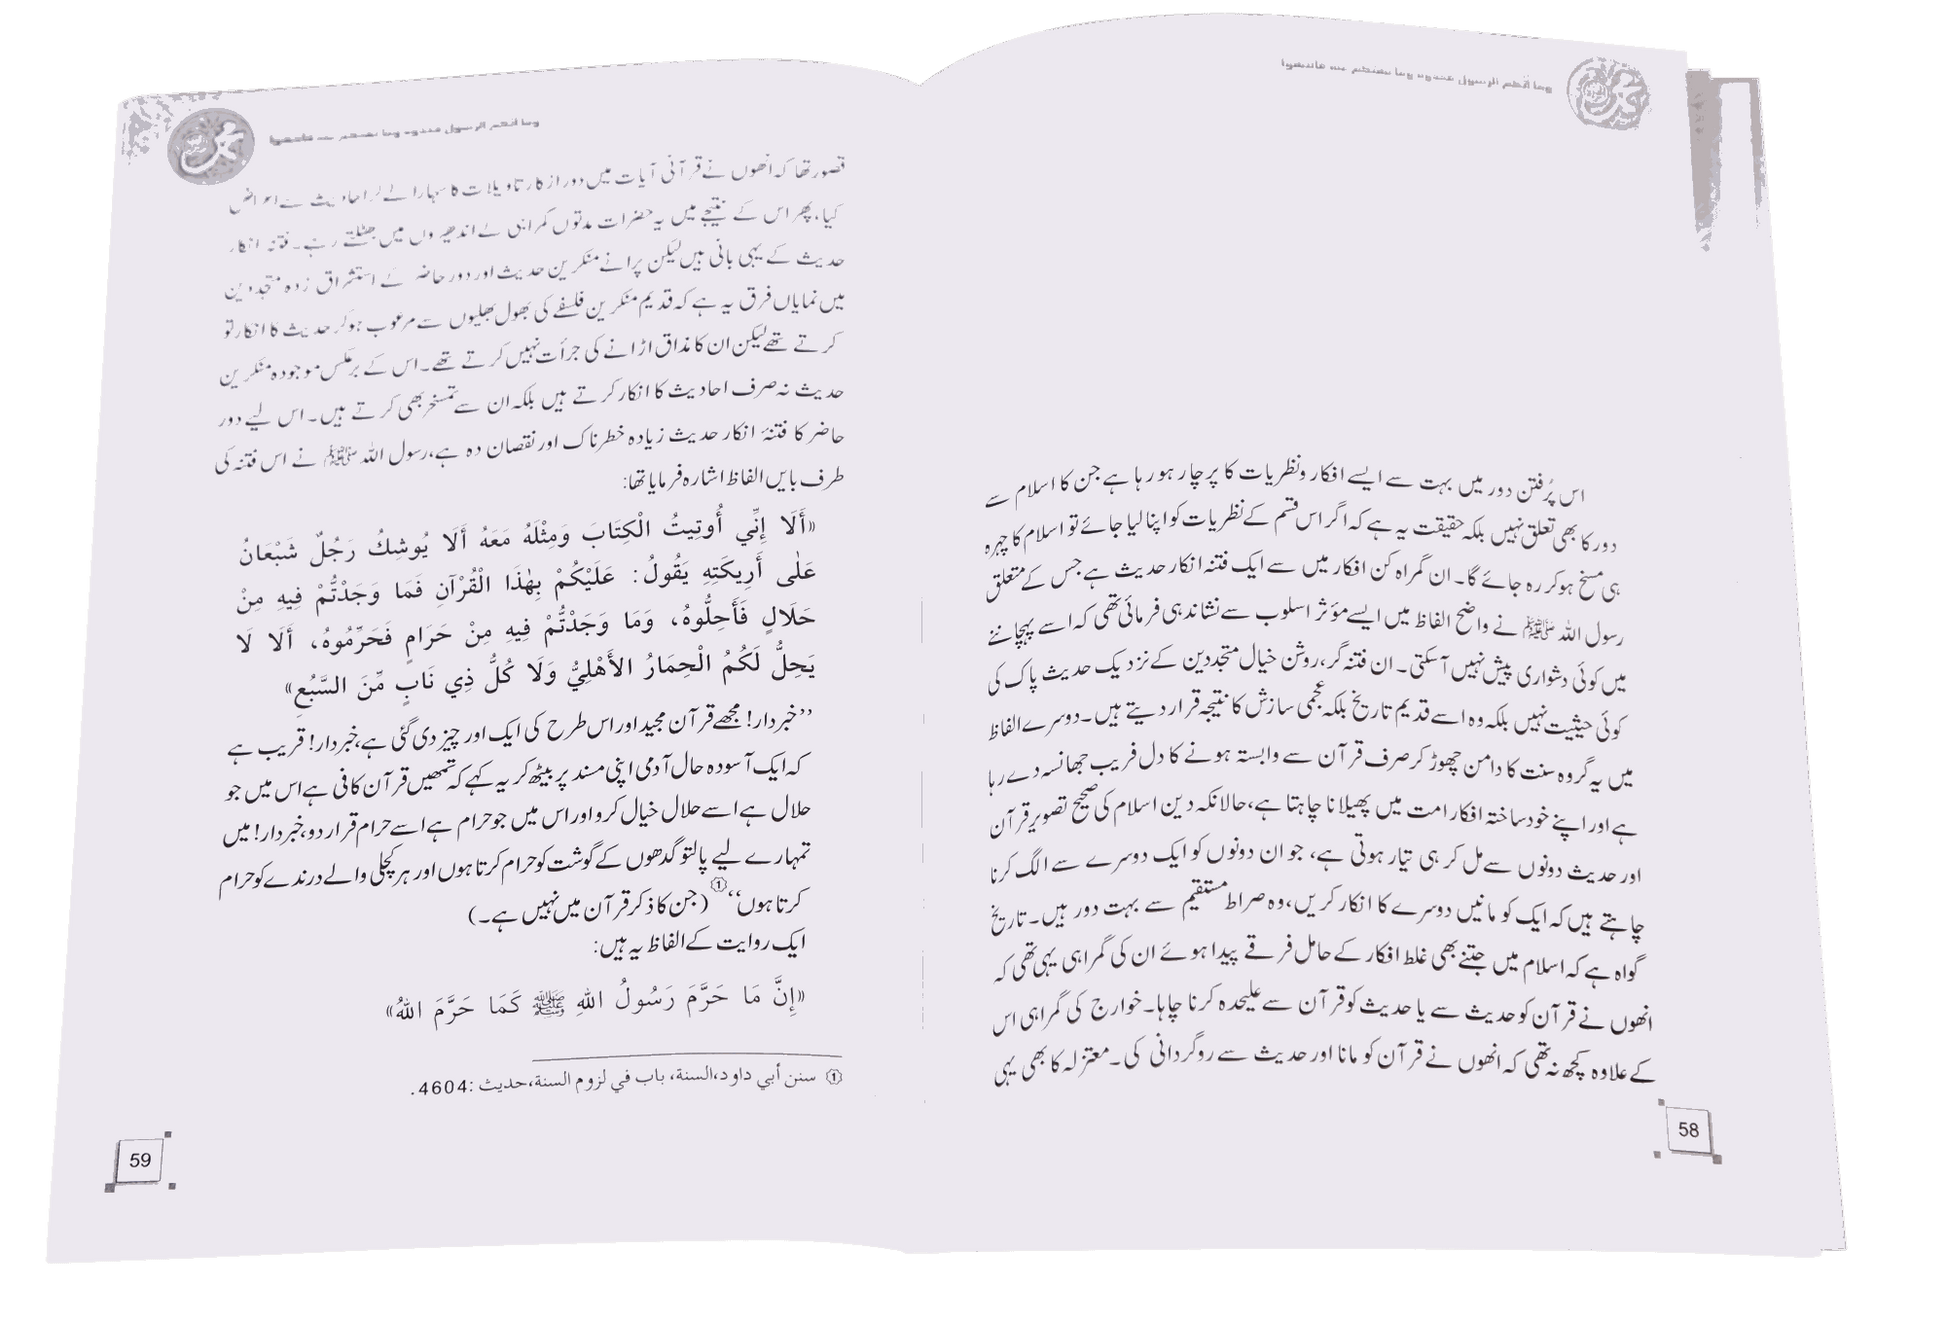 وما آتٰكم الرسول فخذوه وما نهٰكم عنه فانتهوا
اس پُرفتن دور میں بہت سے ایسے افکار ونظریات کا پرچار ہو رہا ہے جن کا اسلام سے
دور کا بھی تعلق نہیں بلکہ حقیقت یہ ہے کہ اگر اس قسم کے نظریات کو اپنا لیا جائے تو اسلام کا چہرہ
ہی مسخ ہو کر رہ جائے گا۔ ان گمراہ کن افکار میں سے ایک فتنہ انکار حدیث ہے جس کے متعلق
رسول اللہ ﷺ نے واضح الفاظ میں ایسے مؤثر اسلوب سے نشاندہی فرمائی تھی کہ اسے پہچاننے
میں کوئی دشواری پیش نہیں آسکتی۔ ان فتنہ گر، روشن خیال متجددین کے نزدیک حدیث پاک کی
کوئی حیثیت نہیں بلکہ وہ اسے قدیم تاریخ بلکہ عجمی سازش کا نتیجہ قرار دیتے ہیں۔ دوسرے الفاظ
میں یہ گروہ سنت کا دامن چھوڑ کر صرف قرآن سے وابستہ ہونے کا دل فریب جھانسہ دے رہا
ہے اور اپنے خود ساختہ افکار امت میں پھیلانا چاہتا ہے، حالانکہ دین اسلام کی صحیح تصویر قرآن
اور حدیث دونوں سے مل کر ہی تیار ہوتی ہے، جو ان دونوں کو ایک دوسرے سے الگ کرنا
چاہتے ہیں کہ ایک کو مانیں دوسرے کا انکار کریں، وہ صراط مستقیم سے بہت دور ہیں۔ تاریخ
گواہ ہے کہ اسلام میں جتنے بھی غلط افکار کے حامل فرقے پیدا ہوئے ان کی گمراہی یہی تھی کہ
انھوں نے قرآن کو حدیث سے یا حدیث کو قرآن سے علیحدہ کرنا چاہا۔ خوارج کی گمراہی اس
کے علاوہ کچھ نہ تھی کہ انھوں نے قرآن کو مانا اور حدیث سے روگردانی کی۔ معتزلہ کا بھی یہی
58
وما آتٰكم الرسول فخذوه وما نهٰكم عنه فانتهوا
قصور تھا کہ انھوں نے قرآنی آیات میں دور از کار تاویلات کا سہارا لے کر احادیث سے اعراض
کیا، پھر اس کے نتیجے میں یہ حضرات مدتوں گمراہی کے اندھیروں میں بھٹکتے رہے۔ فتنہ انکار
حدیث کے یہی بانی ہیں لیکن پرانے منکرین حدیث اور دور حاضر کے استشراق زدہ متجددین
میں نمایاں فرق یہ ہے کہ قدیم منکرین فلسفے کی بھول بھلیوں سے مرعوب ہوکر حدیث کا انکار تو
کرتے تھے لیکن ان کا مذاق اڑانے کی جرأت نہیں کرتے تھے۔ اس کے برعکس موجودہ منکرین
حدیث نہ صرف احادیث کا انکار کرتے ہیں بلکہ ان سے تمسخر بھی کرتے ہیں۔ اس لیے دور
حاضر کا فتنۂ انکار حدیث زیادہ خطرناک اور نقصان دہ ہے، رسول اللہ ﷺ نے اس فتنہ کی
طرف بایں الفاظ اشارہ فرمایا تھا:
«أَلَا إِنِّي أُوتِيتُ الْكِتَابَ وَمِثْلَهُ مَعَهُ أَلَا يُوشِكُ رَجُلٌ شَبْعَانُ
عَلٰى أَرِيكَتِهِ يَقُولُ: عَلَيْكُمْ بِهٰذَا الْقُرْآنِ فَمَا وَجَدْتُّمْ فِيهِ مِنْ
حَلَالٍ فَأَحِلُّوهُ، وَمَا وَجَدْتُّمْ فِيهِ مِنْ حَرَامٍ فَحَرِّمُوهُ، أَلَا لَا
يَحِلُّ لَكُمُ الْحِمَارُ الأَهْلِيُّ وَلَا كُلُّ ذِي نَابٍ مِّنَ السَّبُعِ»
’’خبردار! مجھے قرآن مجید اور اس طرح کی ایک اور چیز دی گئی ہے، خبردار! قریب ہے
کہ ایک آسودہ حال آدمی اپنی مسند پر بیٹھ کر یہ کہے کہ تمھیں قرآن کافی ہے اس میں جو
حلال ہے اسے حلال خیال کرو اور اس میں جو حرام ہے اسے حرام قرار دو، خبردار! میں
تمہارے لیے پالتو گدھوں کے گوشت کو حرام کرتا ہوں اور ہر کچلی والے درندے کو حرام
کرتا ہوں‘‘① (جن کا ذکر قرآن میں نہیں ہے۔)
ایک روایت کے الفاظ یہ ہیں:
«إِنَّ مَا حَرَّمَ رَسُولُ اللهِ ﷺ كَمَا حَرَّمَ اللهُ»
① سنن أبي داود، السنة، باب في لزوم السنة، حديث: 4604.
59